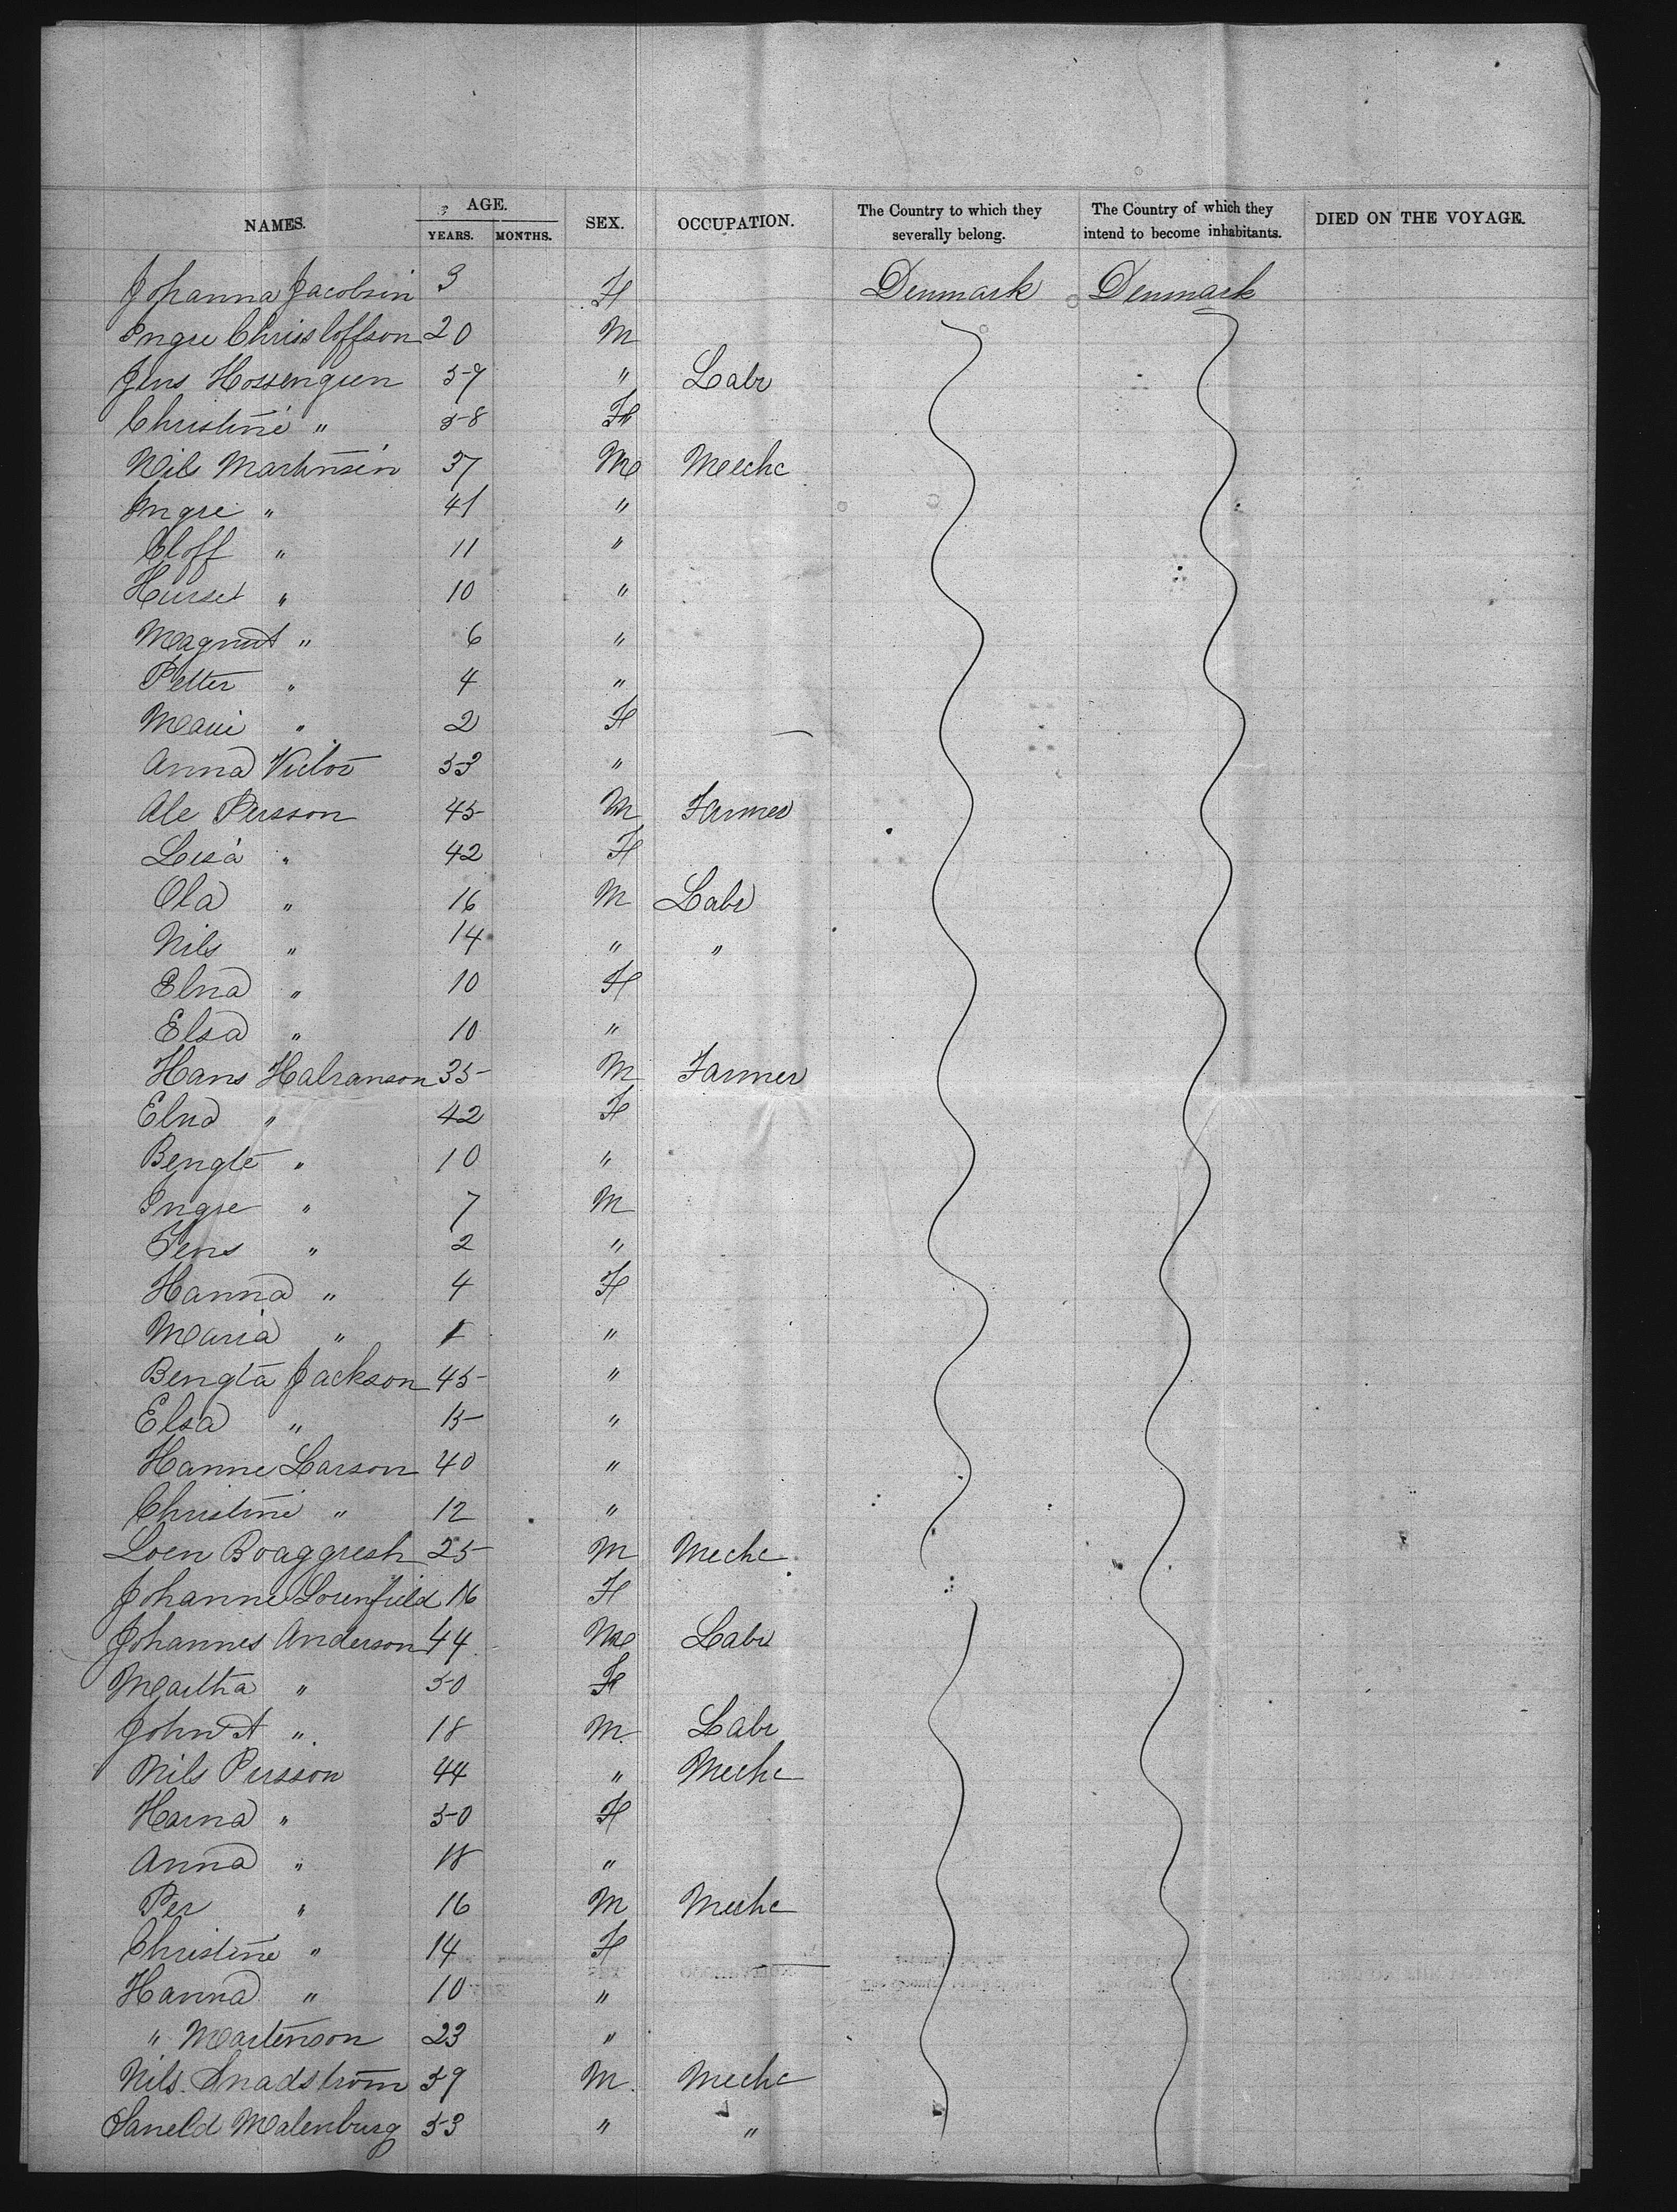 NAMES. AGE. SEX. OCCUPATION. The Country to which they severally belong. The Country of which they intend to become inhabitants. DIED ON THE VOYAGE.
YEARS. MONTHS.
Johanna Jacobsin 3 F Denmark Denmark
Ingre Christoffson 20 M
Jens Hossengren 59 " Labr
Christine " 58 F
Nils Martinsen 37 M Mechc
Ingre " 41 "
Oloff " 11 "
" 10 "
Magnut " 6 "
Petter " 4 "
Marie " 2 F
Anna Victor 53 "
Ole Persson 45 M Farmer
Lousa " 42 F
Ola " 16 M Labr
Nils " 14 " "
Elna " 10 F
Elsa " 10 "
Hans Halranson 35 M Farmer
Elna " 42 F
Bengte " 10 "
Ingre " 7 M
Jens " 2 "
Hanna " 4 F
Maria " 1 "
Bengta Jackson 45 "
Elsa " 15 "
Hanne Larson 40 "
Christine " 12 "
Loen Boaggresh 25 M Mechc
Johanne Lorenfield 16 F
Johannes Anderson 44 M Labr
Martha " 50 F
John A " 18 M Labr
Nils Persson 44 " Mechc
Harna " 50 F
Anna " 18 "
Per " 16 M Mechc
Christine " 14 F
Hanna " 10 "
" Martenson 23 "
Nils Snadstrom 59 M Mechc
Saneld Malenburg 53 " "